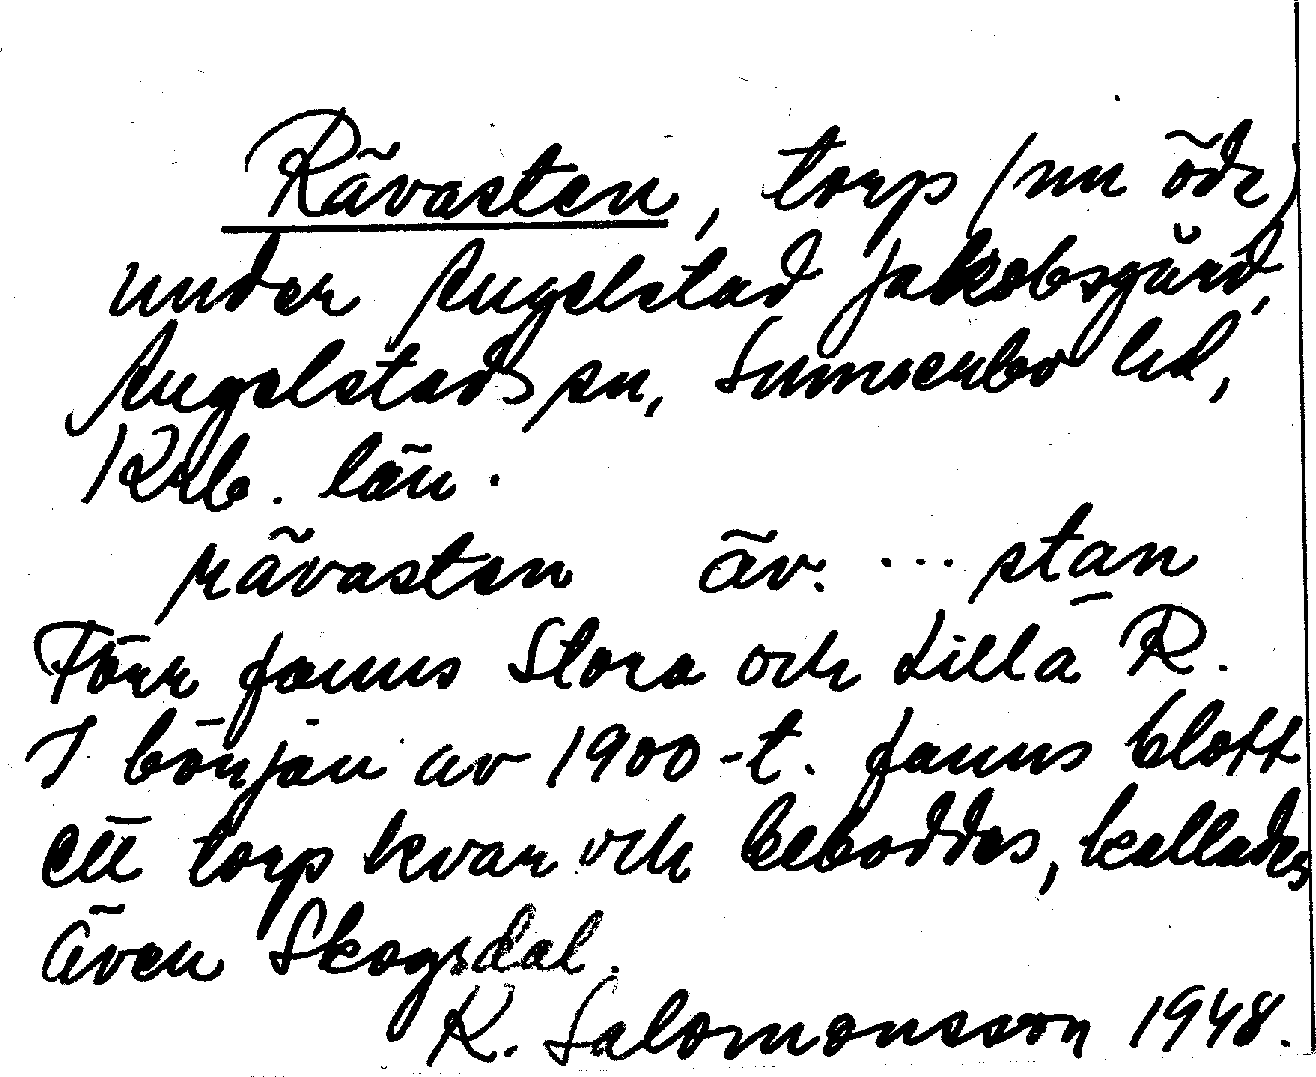 Rävasten, torp (nu öde)
under Angelstad Jakobsgård,
Angelstads sn, Sunnerbo hd,
Krb. län.
rävasten äv. ...stan
Förr fanns Stora och Lilla R.
I början av 1900-t. fanns blott
ett torp kvar och beboddes, kallades
även Skogsdal.
K. Salomonsson 1948.